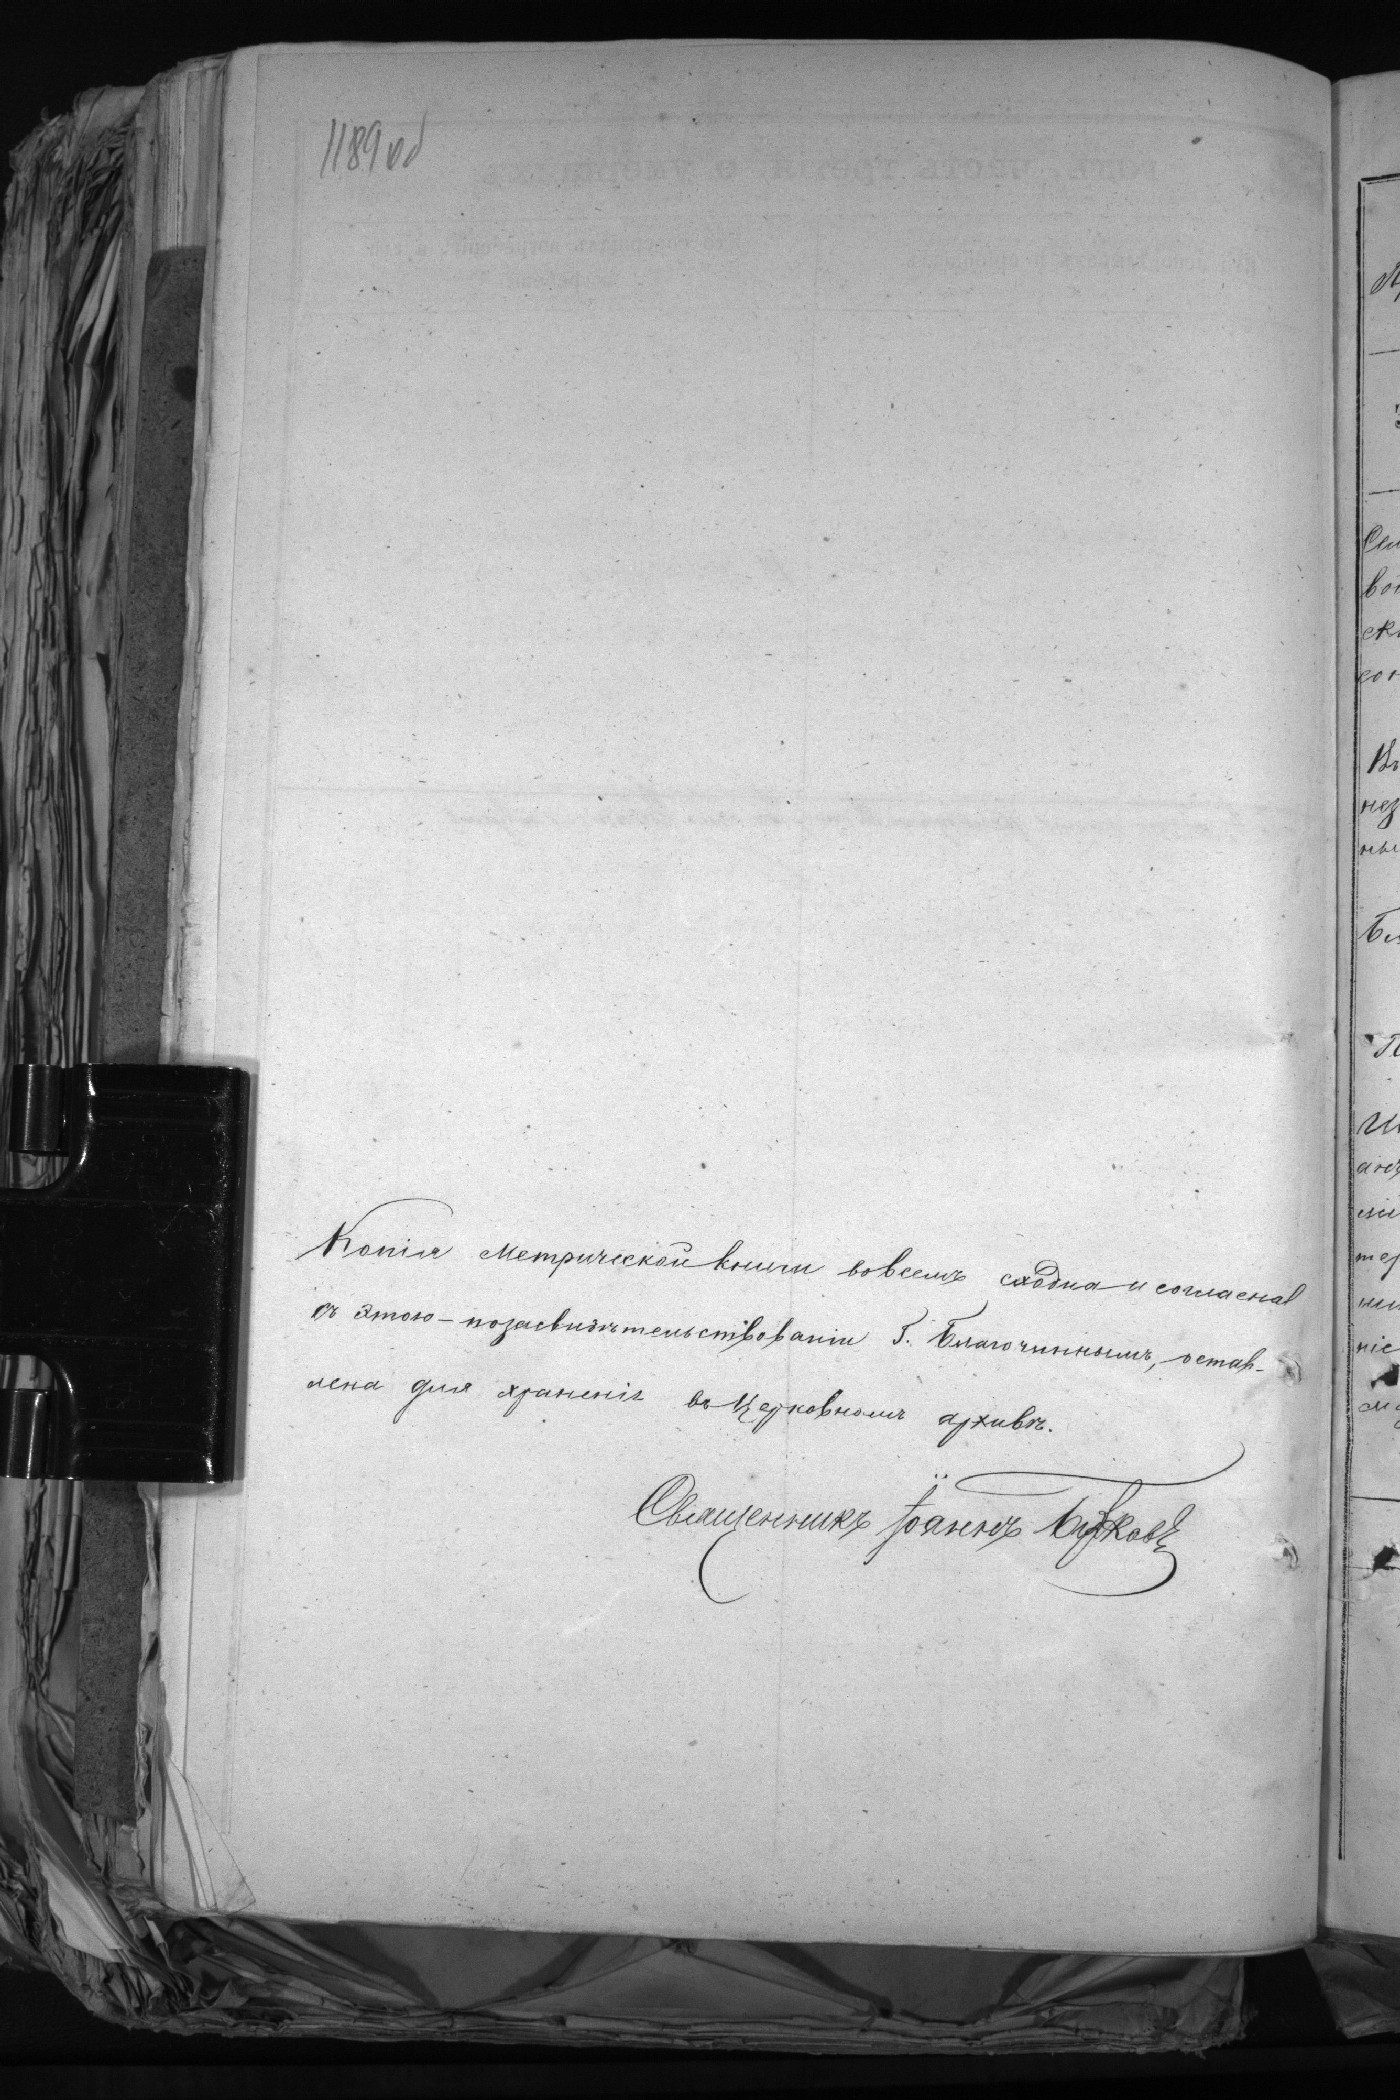 1189 об
Копія метрической книги во всемъ сходна и согласная
съ этою - по засвидѣтельствованіи Г. Благочиннымъ, остав-
лена для храненія въ Церковномъ архивѣ.
Священникъ Іоаннъ